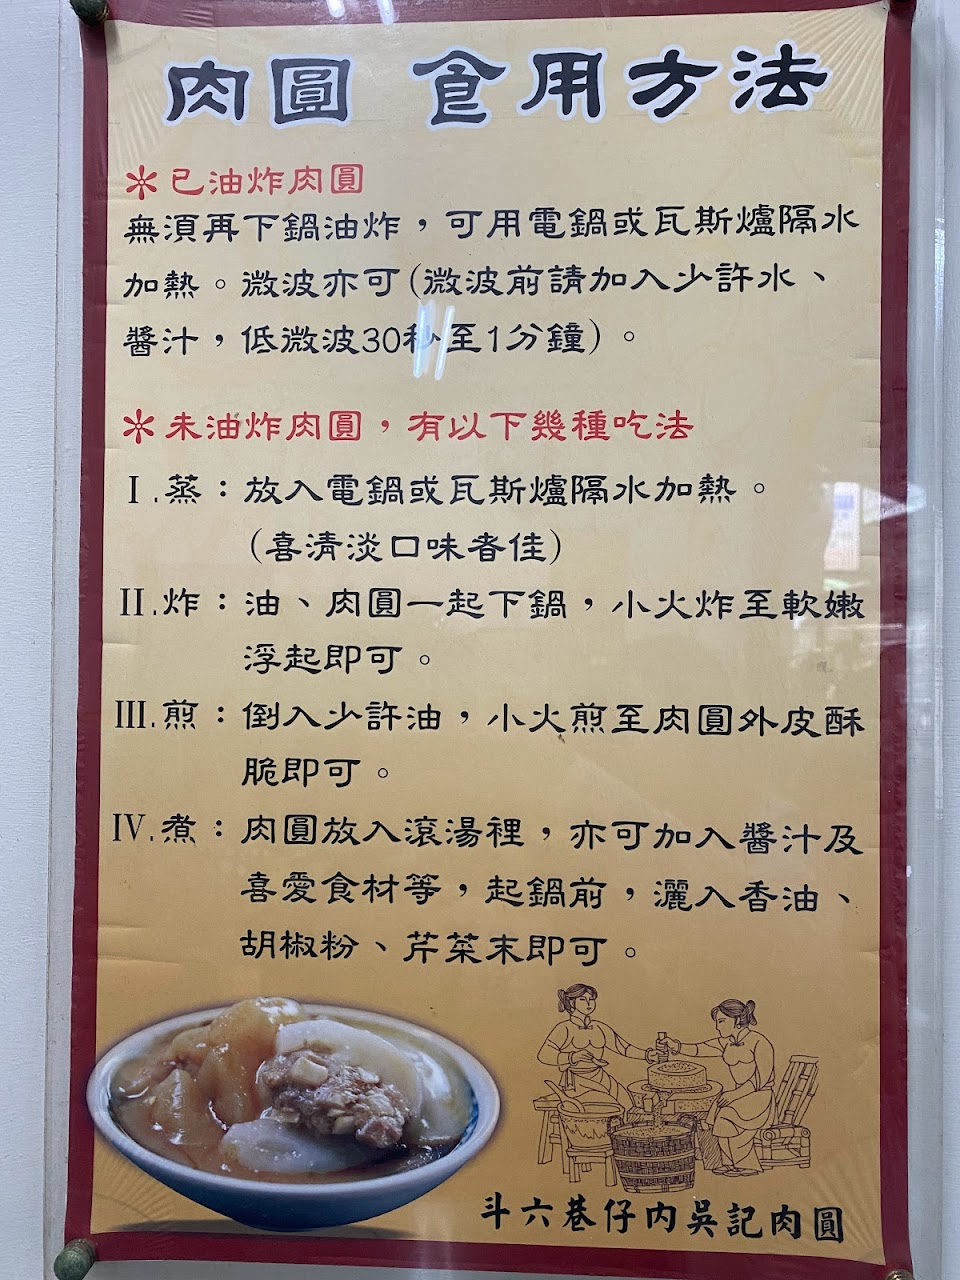 肉圓 食用方法
＊已油炸肉圓
無須再下鍋油炸，可用電鍋或瓦斯爐隔水
加熱。微波亦可(微波前請加入少許水、
醬汁，低微波30秒至1分鐘)。
＊未油炸肉圓，有以下幾種吃法
I.蒸：放入電鍋或瓦斯爐隔水加熱。
(喜清淡口味者佳)
II.炸：油、肉圓一起下鍋，小火炸至軟嫩
浮起即可。
III.煎：倒入少許油，小火煎至肉圓外皮酥
脆即可。
IV.煮：肉圓放入滾湯裡，亦可加入醬汁及
喜愛食材等，起鍋前，灑入香油、
胡椒粉、芹菜末即可。
斗六巷仔內吳記肉圓